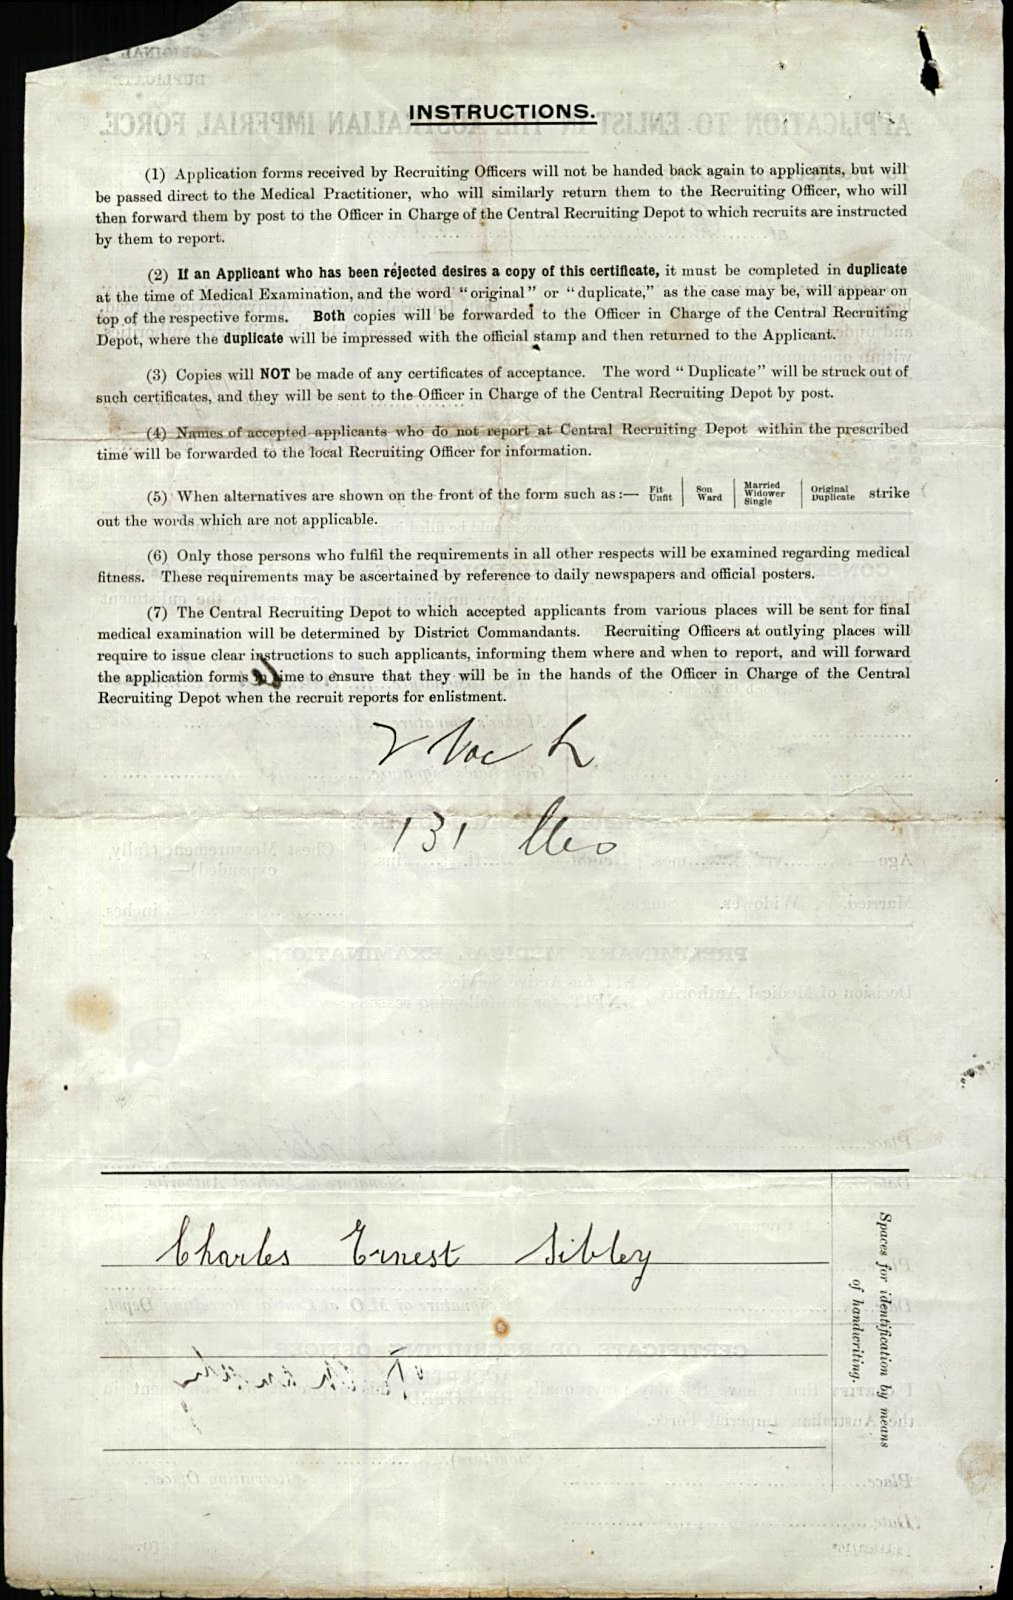 INSTRUCTIONS.
(1) Application forms received by Recruiting Officers will not be handed back again to applicants, but will
be passed direct to the Medical Practitioner, who will similarly return them to the Recruiting Officer, who will
then forward them by post to the Officer in Charge of the Central Recruiting Depot to which recruits are instructed
by them to report.
(2) If an Applicant who has been rejected desires a copy of this certificate, it must be completed in duplicate
at the time of Medical Examination, and the word “original” or “duplicate,” as the case may be, will appear on
top of the respective forms. Both copies will be forwarded to the Officer in Charge of the Central Recruiting
Depot, where the duplicate will be impressed with the official stamp and then returned to the Applicant.
(3) Copies will NOT be made of any certificates of acceptance. The word “Duplicate” will be struck out of
such certificates, and they will be sent to the Officer in Charge of the Central Recruiting Depot by post.
(4) Names of accepted applicants who do not report at Central Recruiting Depot within the prescribed
time will be forwarded to the local Recruiting Officer for information.
(5) When alternatives are shown on the front of the form such as:— Fit Unfit | Son Ward | Married Widower Single | Original Duplicate strike
out the words which are not applicable.
(6) Only those persons who fulfil the requirements in all other respects will be examined regarding medical
fitness. These requirements may be ascertained by reference to daily newspapers and official posters.
(7) The Central Recruiting Depot to which accepted applicants from various places will be sent for final
medical examination will be determined by District Commandants. Recruiting Officers at outlying places will
require to issue clear instructions to such applicants, informing them where and when to report, and will forward
the application forms in time to ensure that they will be in the hands of the Officer in Charge of the Central
Recruiting Depot when the recruit reports for enlistment.
2 Vac L
131 lbs
Charles Ernest Sibley
Spaces for identification by means
of handwriting.